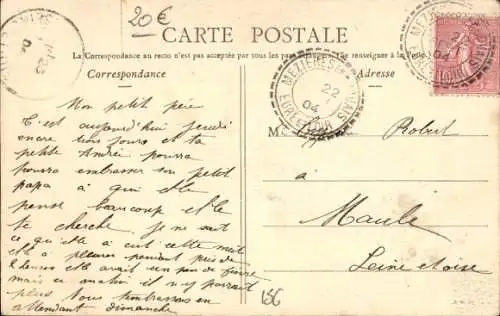 20€
CARTE POSTALE
La Correspondance au recto n'est pas acceptée par tous les pays (Se renseigner à la Poste)
Correspondance
Adresse
MEZIERES
22
04
EURE ET LOIR
Mon petit
C'est aujourd'hui jeudi
encore jours et ta
petite Andrée pourra
pourra embrasser son petit
papa à qui elle
pense beaucoup et le
te cherche Je ne sait
ce qu'elle a eut cette nuit
elle a pleurer pendant près de
heures elle avait un peu de fièvre
mais ce matin il n'y parrait
plus Nous t'embrassons en
attendant dimanche
Robert
à
Maule
Seine et oise
156